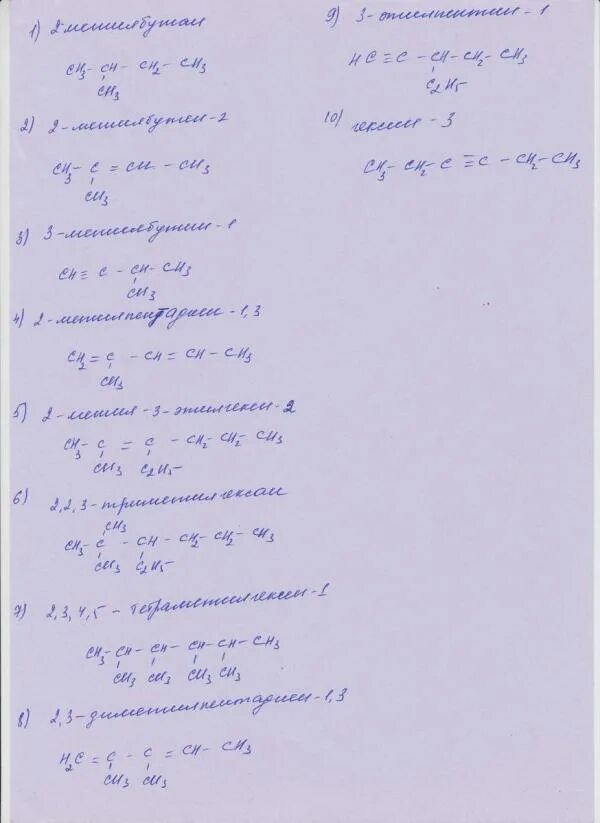 1) 2 метилбутан
CH3 - CH - CH2 - CH3
CH3
2) 2-метилбутен-2
CH3 - C = CH - CH3
CH3
3) 3-метилбутин-1
CH ≡ C - CH - CH3
CH3
4) 2-метилпентадиен-1,3
CH2 = C - CH = CH - CH3
CH3
5) 2-метил-3-этилгексен-2
CH3 - C = C - CH2 - CH2 - CH3
CH3 C2H5
6) 2,2,3-триметилгексан
CH3
CH3 - C - CH - CH2 - CH2 - CH3
CH3 C2H5
7) 2,3,4,5-тетраметилгексен-1
CH3 - CH - CH - CH - CH - CH3
CH3 CH3 CH3 CH3
8) 2,3-диметилпентадиен-1,3
H2C = C - C = CH - CH3
CH3 CH3
9) 3-этилпентин-1
HC ≡ C - CH - CH2 - CH3
C2H5
10) гексин-3
CH3 - CH2 - C ≡ C - CH2 - CH3